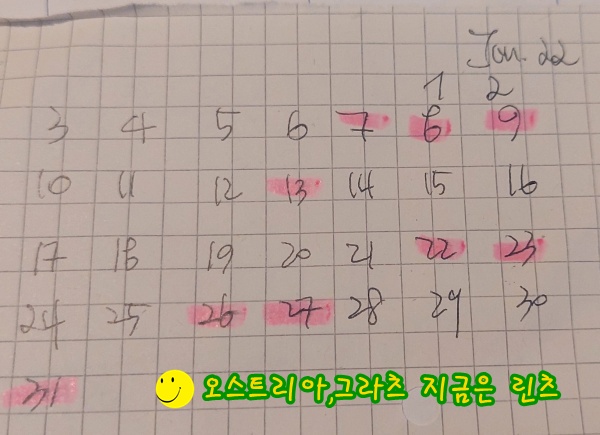 Jan. 22
1 2
3 4 5 6 7 8 9
10 11 12 13 14 15 16
17 18 19 20 21 22 23
24 25 26 27 28 29 30
31
오스트리아,그라츠 지금은 린츠